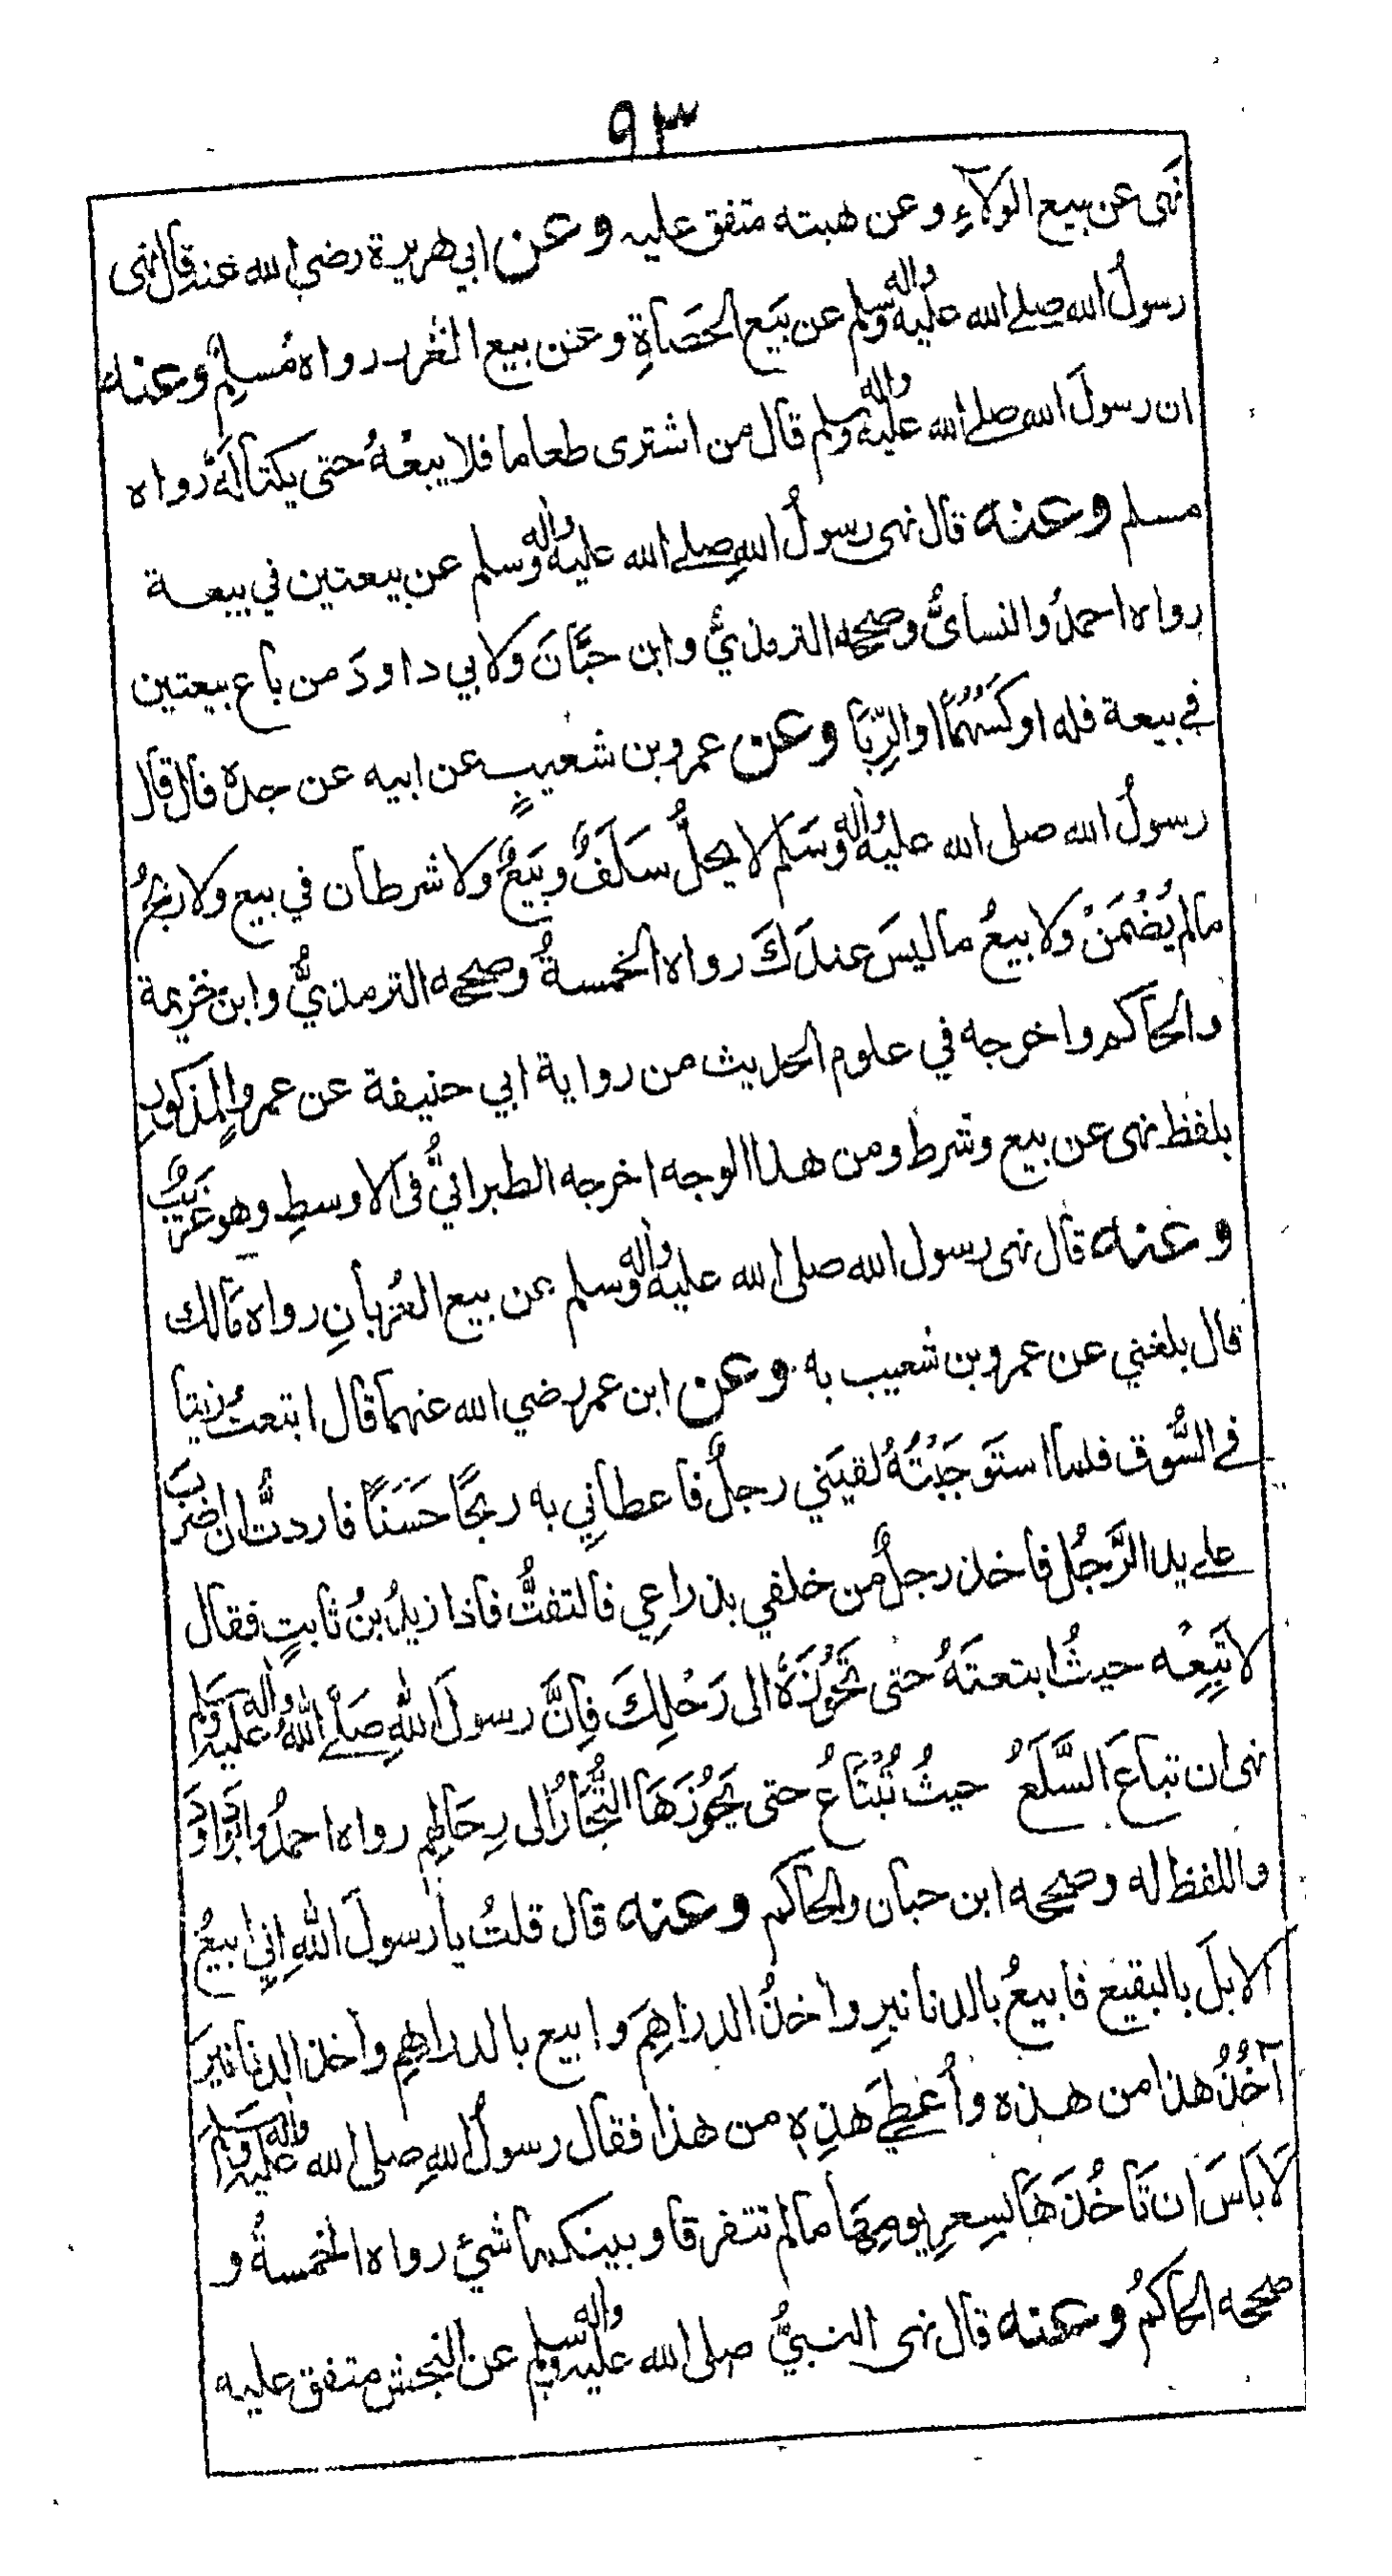 ٩٣
نَهى عن بيع الولآءِ وعن هبته متفق عليه وعن ابي هريرة رضي الله عنه قال نهى
رسولُ الله صلے الله عليه واله وسلم عن بَيع الحَصَاةِ وعن بيع الغرر رواه مُسلِمٌ وعنه
ان رسولَ الله صلے الله عليه واله وسلم قال من اشترى طعاما فلا يبعْهُ حتى يكتالَهُ رواه
مسلم وعنه قال نهى رسولُ اللهِ صلے الله عليه واله وسلم عن بيعتين في بيعة
رواه احمدُ والنسائىُّ وصححه الترمذيُّ وابن حبَّانَ ولابي داودَ من باع بيعتين
في بيعة فله اوكَسُهُمَا اوالرِّبَا وعن عمرو بن شعيبٍ عن ابيه عن جده قال قال
رسولُ الله صلى الله عليه واله وسَلم لا يحلُّ سَلَفٌ وبَيَعٌ ولا شرطان في بيع ولا ربحُ
مالم يُضْمَنْ ولا بيعُ ماليسَ عندَكَ رواه الخمسةُ وصححه الترمذيُّ وابن خزيمة
والحاكم واخرجه في علوم الحديث من رواية ابي حنيفة عن عمرٍو المذكورِ
بلفظ نهى عن بيع وشرط ومن هذا الوجه اخرجه الطبرانيُّ فى الاوسطِ وهو غريبٌ
وعنه قال نهى رسول الله صلى الله عليه واله وسلم عن بيع العُربانِ رواه مالك
قال بلغني عن عمرو بن شعيب به وعن ابن عمر رضي الله عنهما قال ابتعتُ زيتا
في السُّوق فلما استَوجَبْتُهُ لقيَني رجلٌ فاعطانِي به ربحًا حَسَنًا فاردتُّ ان اضربَ
علے يد الرَّجُلِ فاخذ رجلٌ من خلفي بذراعِي فالتفتُّ فاذا زيدُ بنُ ثابتٍ فقال
لا تَبِعْه حيثُ ابتعتَهُ حتى تَحُوْزَهُ الى رَحْلِكَ فِانَّ رسولَ اللهِ صَلے اللهُ عليه واله وسلم
نهى ان تباعَ السَّلَعُ حيثُ تُبْتَاعُ حتى يَحُوْزَهَا التُّجَّارُ الى رِحَالِهِم رواه احمدُ وابوداودَ
واللفظ له وصححه ابن حبان والحاكم وعنه قال قلتُ يا رسولَ اللهِ اِنِي ابيعُ
الابلَ بالبقيع فابيعُ بالدنانيرِ واخذُ الدراهِمَ وابيع بالدراهِمِ واخذ الدنانيرَ
آخُذُ هذا من هذه وأُعْطِي هذِهِ من هذا فقال رسولُ اللهِ صلى الله عليه واله وسلم
لَا بَاسَ ان تَاخُذَهَا بسِعِرِ يومِهَا مالم تتفرقا وبينكما شئ رواه الخمسةُ و
صححه الحاكمُ وعنه قال نهى النبيُّ صلى الله عليه واله وسلم عن النجش متفق عليه